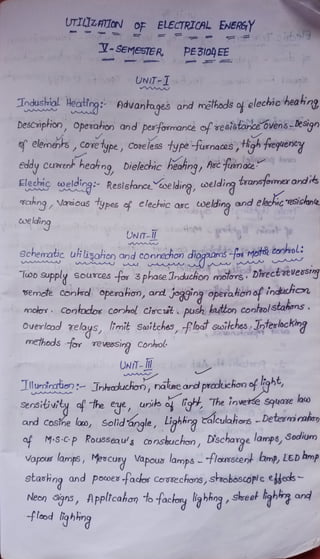 UTILIZATION OF ELECTRICAL ENERGY
V-SEMESTER PE3104EE
UNIT-I
Industrial Heating:- Advantages and methods of electric heating
Description, operation and performance of resistance ovens-Design
of elements, core type, Coreless type furnaces, High frequency
eddy current heating, Dielectric heating, Arc furnace
Electric welding:- Resistance welding, welding transformer and its
rating, Various types of electric arc welding and electric resistance
welding
UNIT-II
Schematic utilization and connection diagrams for Motor control:
Two supply sources for 3 phase Induction motors. Direct reversing
remote control operation, and jogging operation of induction
motor. Contactor control circuit. push button control stations.
Overload relays, limit switches, float switches. Interlocking
methods for reversing control.
UNIT-III
Illumination:- Introduction, nature and production of light,
sensitivity of the eye, units of light, The inverse square law
and cosine law, Solid angle, Lighting calculations - Determination
of M.S.C.P Rousseau's construction, Discharge lamps, Sodium
vapour lamps, Mercury Vapour lamps - flourscent lamp, LED lamp
starting and power-factor corrections, stroboscopic effects-
Neon signs, Application to factory lighting, street lighting and
flood lighting